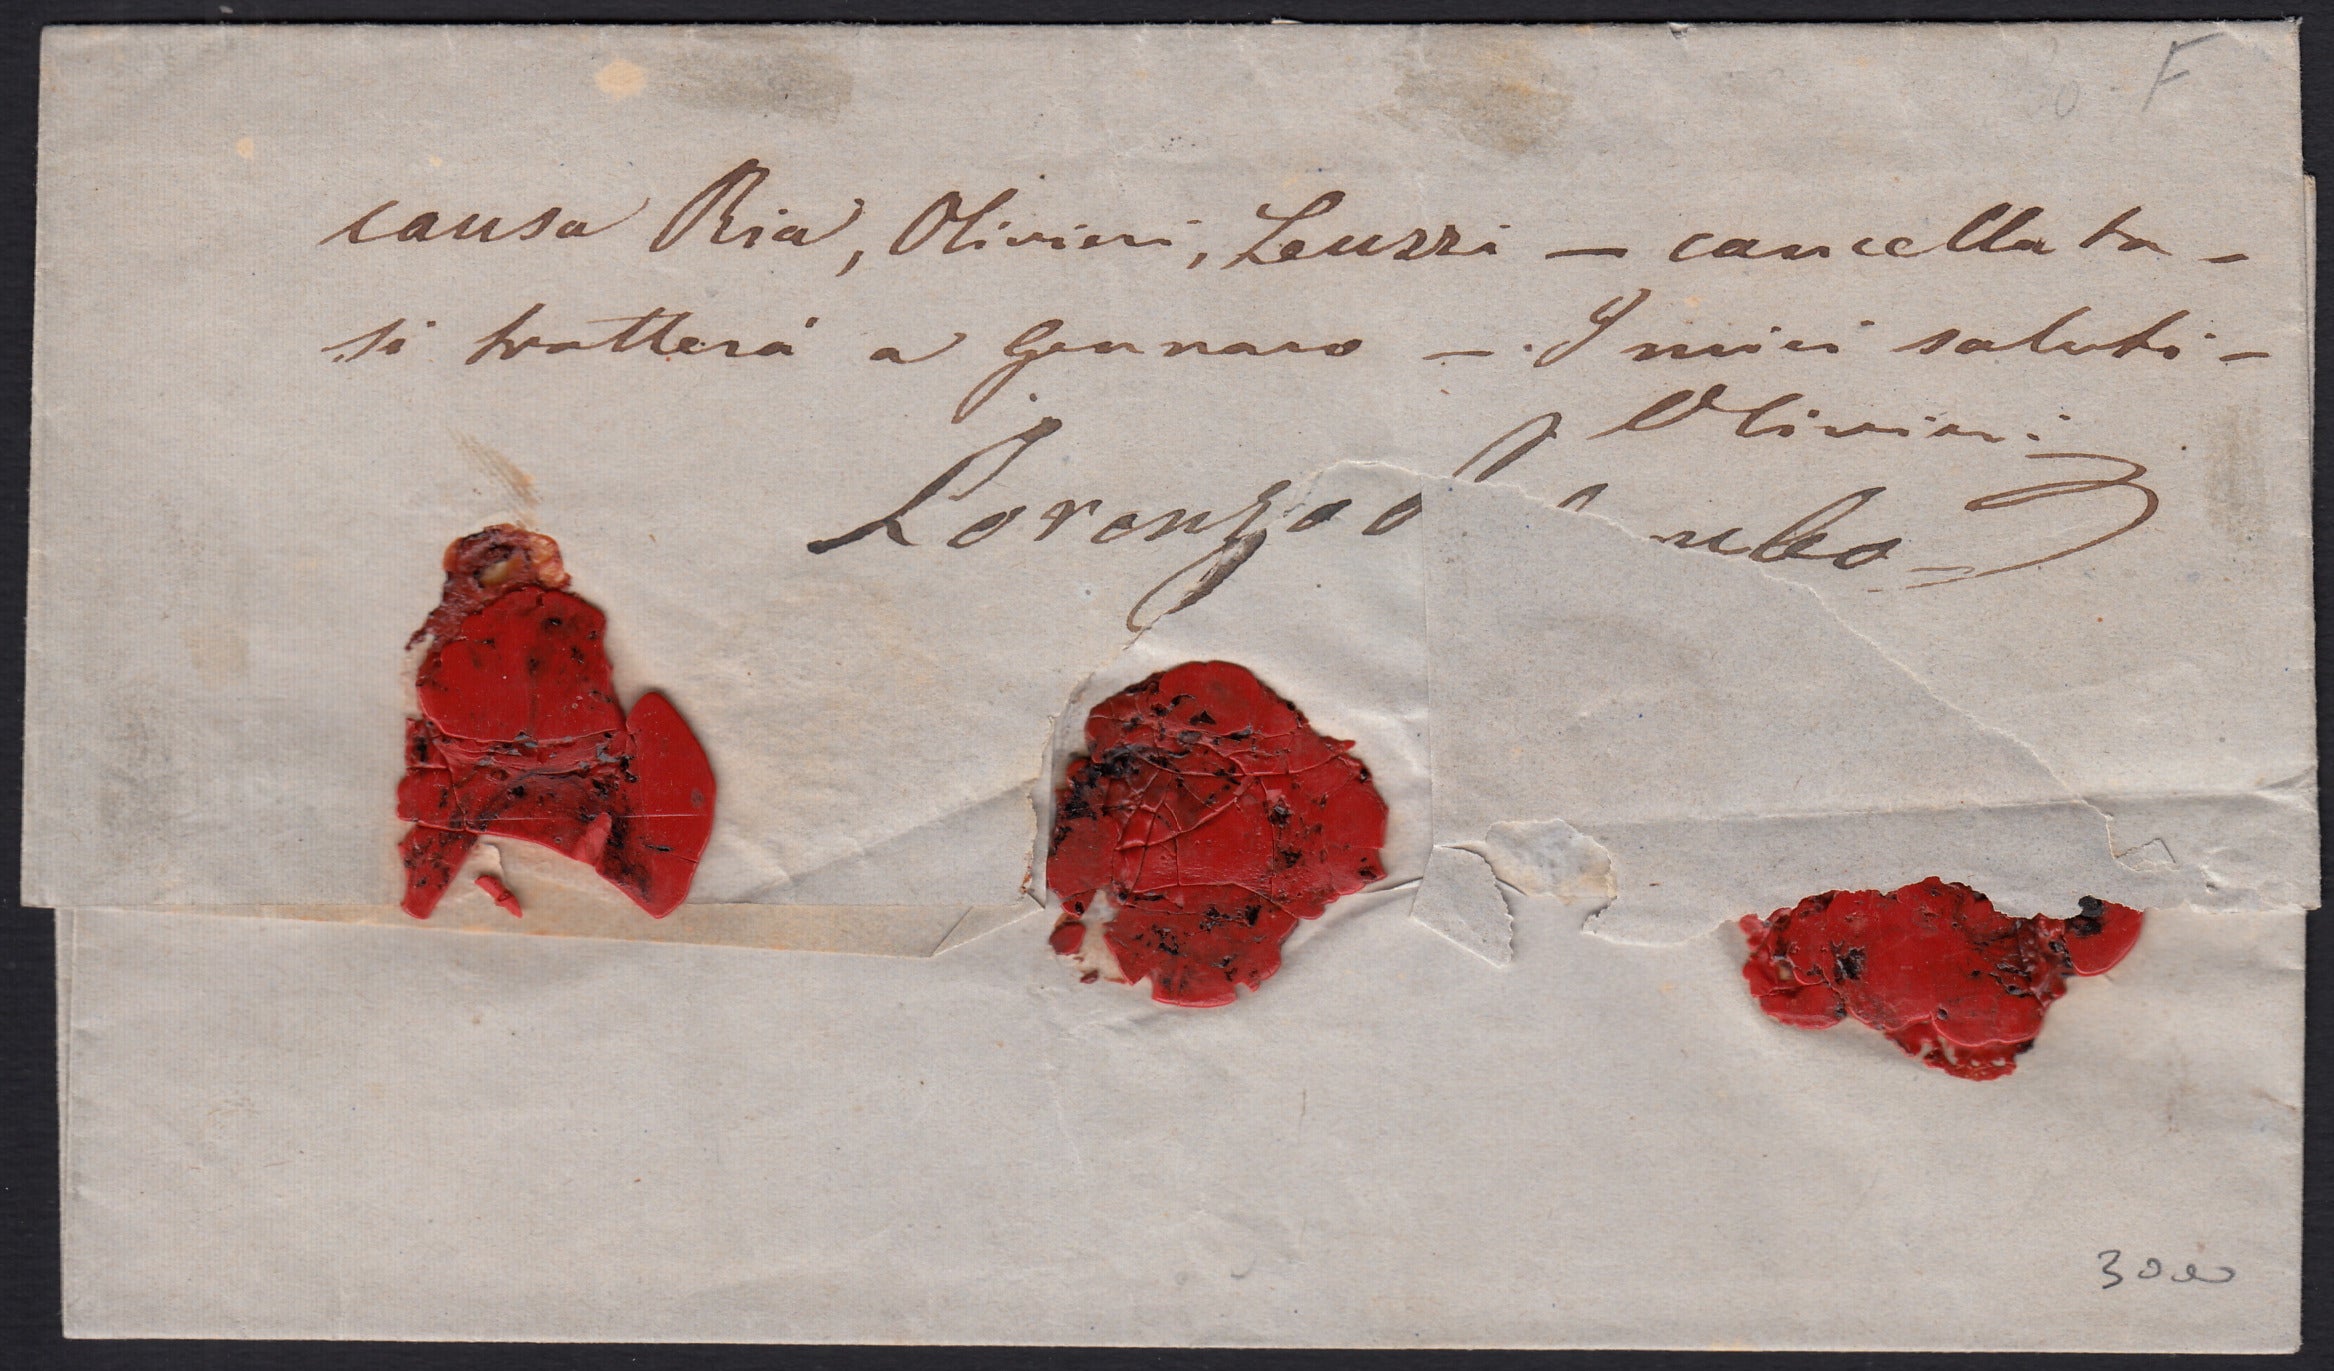 F
causa Ria, Olivieri, Leuzzi — cancellata —
si tratterà a Gennaro — . I miei saluti —
Olivieri
Lorenzo